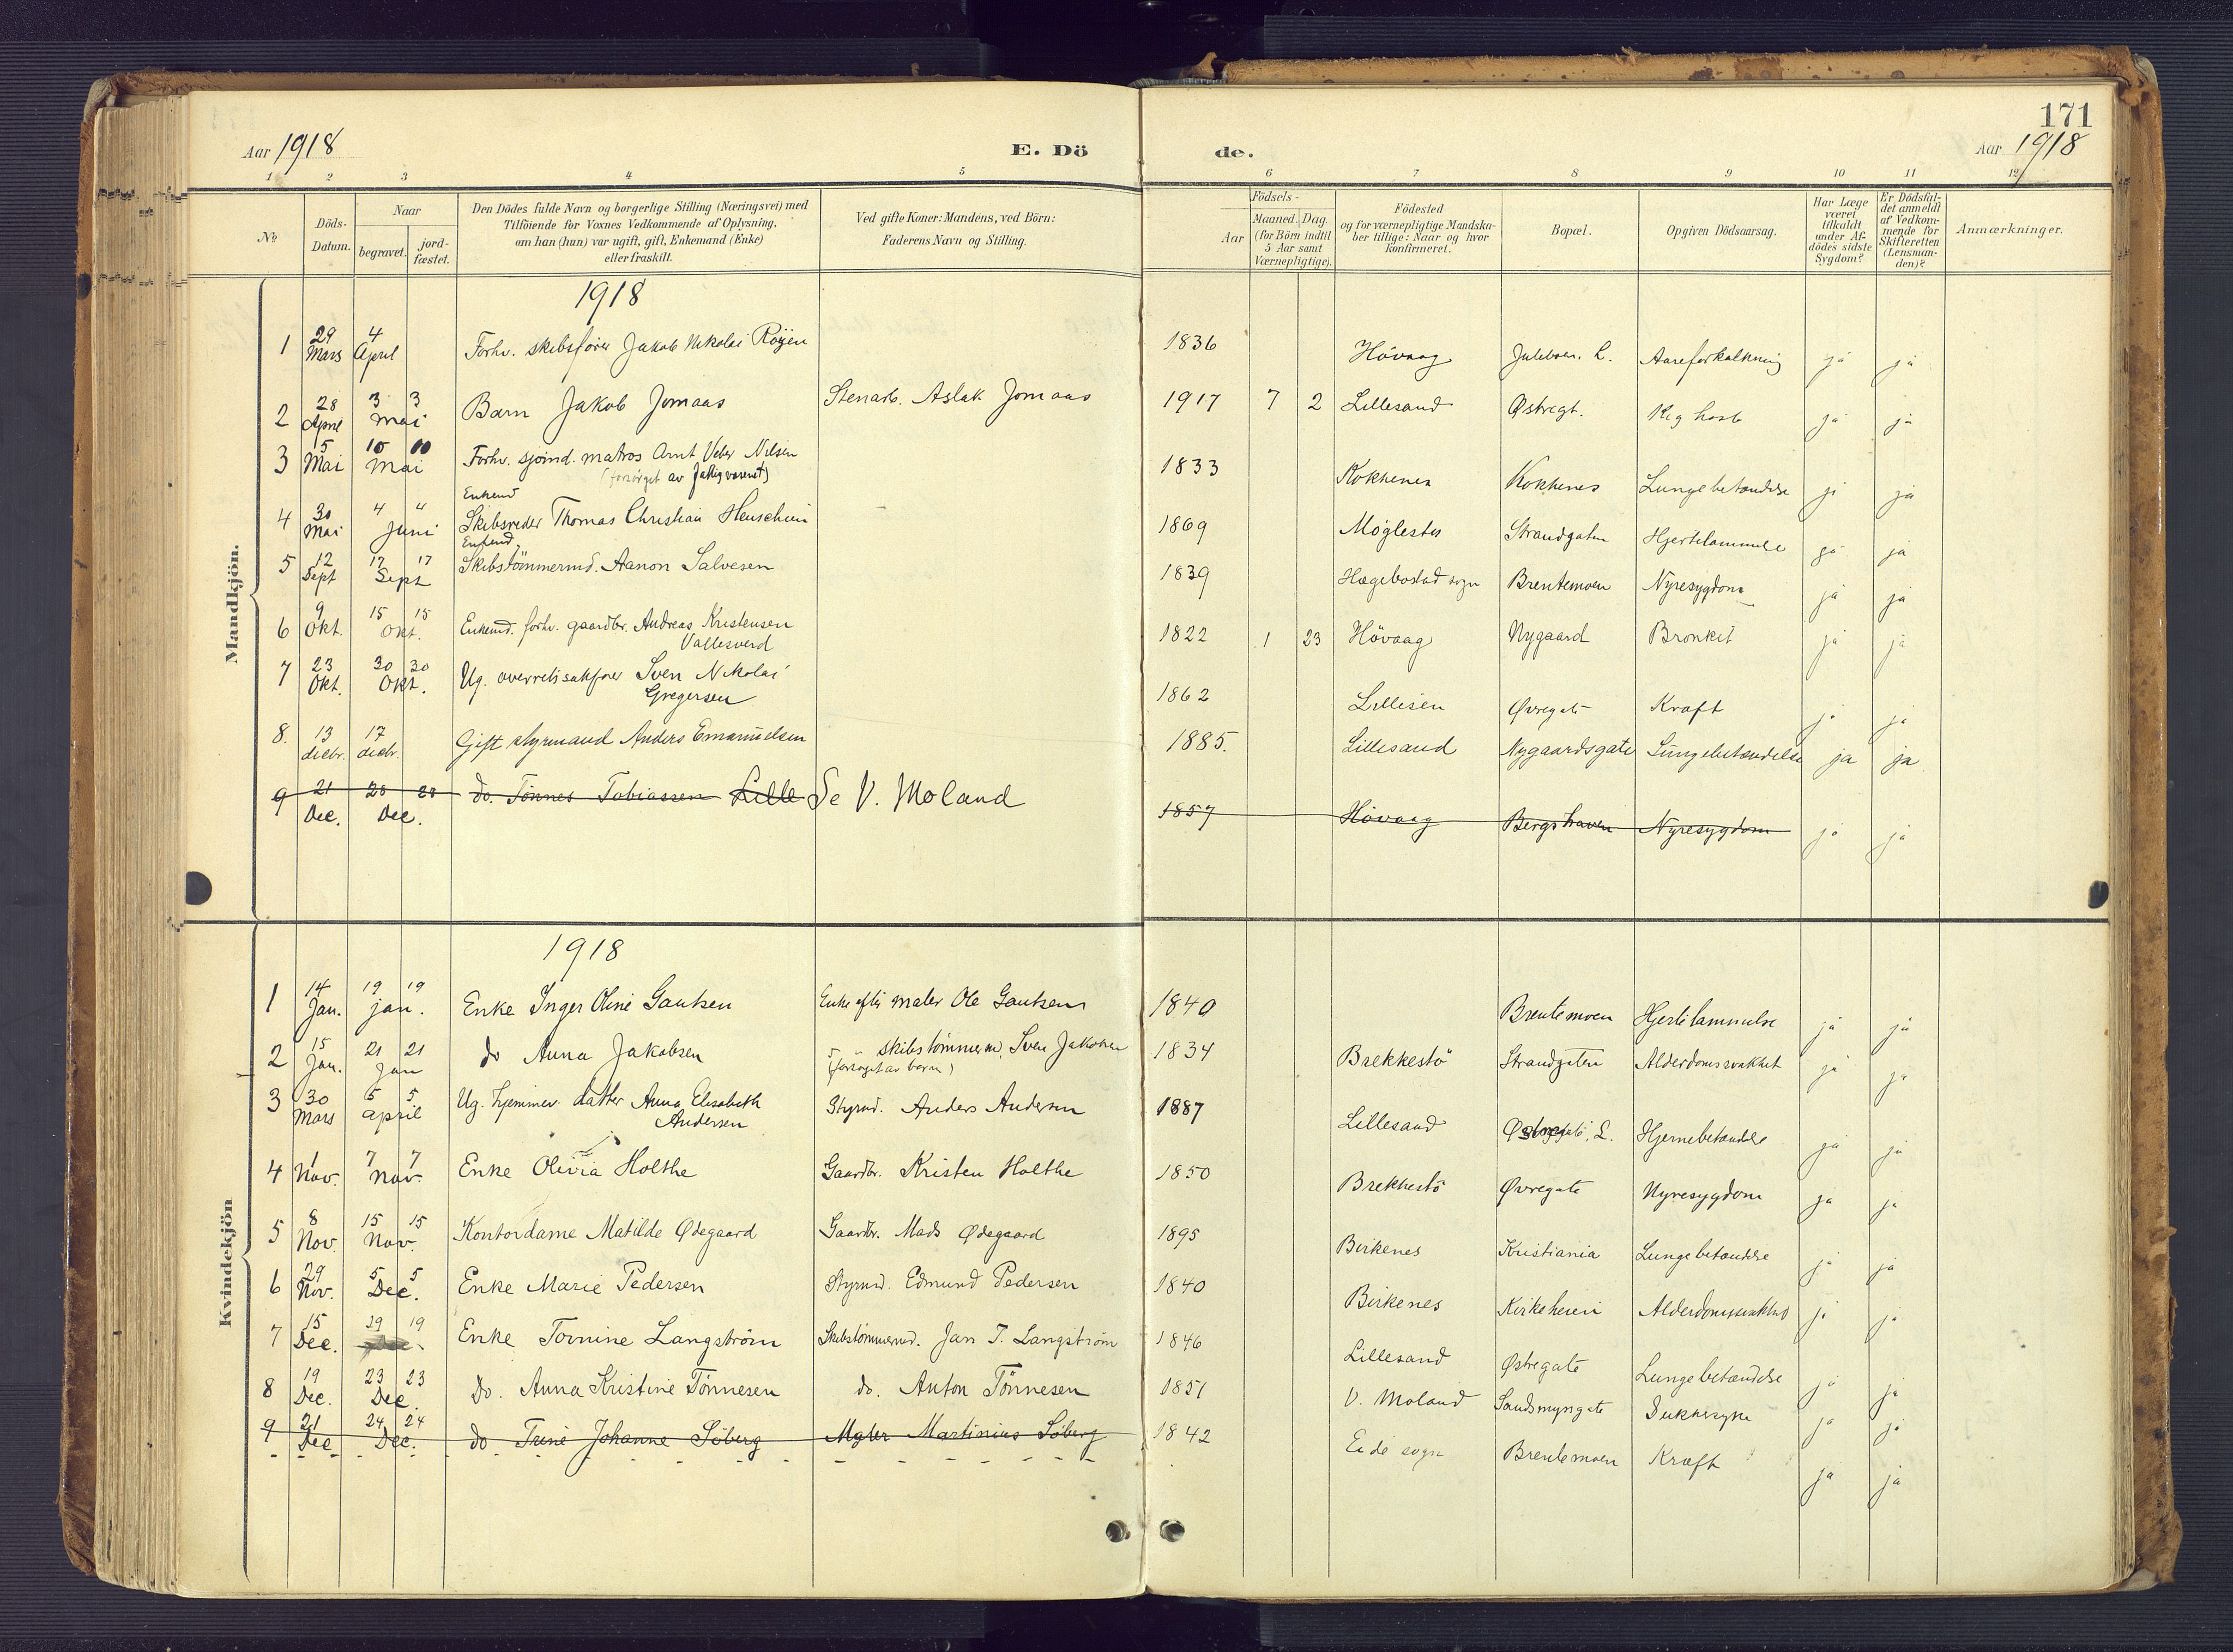 171
Aar 1918
E. Dö
de.
Aar 1918
1 2 3 4 5 6 7 8 9 10 11 12
No
Döds-
Datum.
Naar
begravet.
jord-
fæstet.
Den Dödes fulde Navn og borgerlige Stilling (Næringsvei) med
Tilföiende for Voxnes Vedkommende af Oplysning,
om han (hun) var ugift, gift, Enkemand (Enke)
eller fraskilt.
Ved gifte Koner: Mandens, ved Börn:
Faderens Navn og Stilling.
Födsels-
Aar
Maaned. Dag.
(for Börn indtil
5 Aar samt
Værnepligtige).
Födested
og for værnepligtige Mandska-
ber tillige: Naar og hvor
konfirmeret.
Bopæl.
Opgiven Dödsaarsag.
Har Læge
været
tilkaldt
under Af-
dödes sidste
Sygdom?
Er Dödsfal-
det anmeldt
af Vedkom-
mende for
Skifteretten
(Lensman-
den)?
Anmærkninger.
Mandkjön.
1918
1 29 Mars 4 April Forhv. skibsfører Jakob Nikolai Röyen 1836 Hövaag L. Aareforkalkning ja ja
2 28 April 3 3 Mai Barn Jakob Jomaas Stenarb. Aslak Jomaas 1917 7 2 Lillesand Østregt. Kighoste ja ja
3 5 Mai 10 10 Mai Forhv. sjömd. matros Arnt Veber Nilsen
(forsörget av fattigvæsenet)
1833 Kokkenes Kokkenes Lungebetændelse ja ja
Enkemd
4 30 Mai 4 " Juni Skibsreder Thomas Christian Henschien 1869 Möglestu Strandgaten Hjertelammelse ja ja
Enkemd.
5 12 Sept 17 17 Sept Skibstömmermd. Aanon Salvesen 1839 Hægebostad sogn Brentemoen Nyresygdom ja ja
6 9 Okt. 15 15 Okt. Enkemd. forhv. gaardbr. Andreas Kristensen
Vallesverd
1822 1 23 Hövaag Nygaard Bronkit ja ja
7 23 Okt. 30 30 Okt. Ug. overretssakfører Sven Nikolai
Gregersen
1862 Lillesan Øvregate Kræft ja ja
8. 13 decbr. 17 decbr. Gift styrmand Anders Emanuelsen 1885. Lillesand Nygaardsgate Lungebetændelse ja ja
9 21 Dec. 28 28 Dec. do. Tönnes Tobiassen Lille Se V. Moland 1857 Hövaag Bergshaven Nyresygdom ja ja
Kvindekjön
1918
1 14 Jan. 19 19 jan. Enke Inger Oline Gautsen Enke efter maler Ole Gautsen 1840 Brentemoen Hjertelammelse ja ja
2 15 Jan. 21 21 Jan do Anna Jakobsen " " skibstömmermd. Sven Jakobsen
(forsörget av barn)
1834 Brekkestö Strandgaten Alderdomssvakhet ja ja
3 30 Mars 5 5 april Ug. hjemmev. datter Anna Elisabeth
Andersen
Styrmd. Anders Andersen 1887 Lillesand L. Hjernebetændelse ja ja
4 1 Nov. 7 7 Nov. Enke Olivia Holthe Gaardbr. Kristen Holthe 1850 Brekkestö Øvregate Nyresygdom ja ja
5 8 Nov. 15 15 Nov. Kontordame Matilde Ødegaard Gaardbr. Mads Ødegaard 1895 Birkenes Kristiania Lungebetændelse ja ja
6 29 Nov. 5 5 Dec. Enke Marie Pedersen Styrmd. Edmund Pedersen 1840 Birkenes Kirkeheien Alderdomssvakhed ja ja
7 15 Dec. 19 19 Enke Tomine Langström Skibstömmermd. Jan T. Langström 1846 Lillesand Østregate Lungebetændelse ja ja
8 19 Dec. 23 23 Dec. Do. Anna Kristine Tönnesen do. Anton Tönnesen 1851 V. Moland Sandsmyrgate Sukkersyke ja ja
9 21 Dec 24 24 Dec. do Trine Johanne Söberg Maler Martinius Söberg 1842 Eide sogn Brentemoen Kræft ja ja